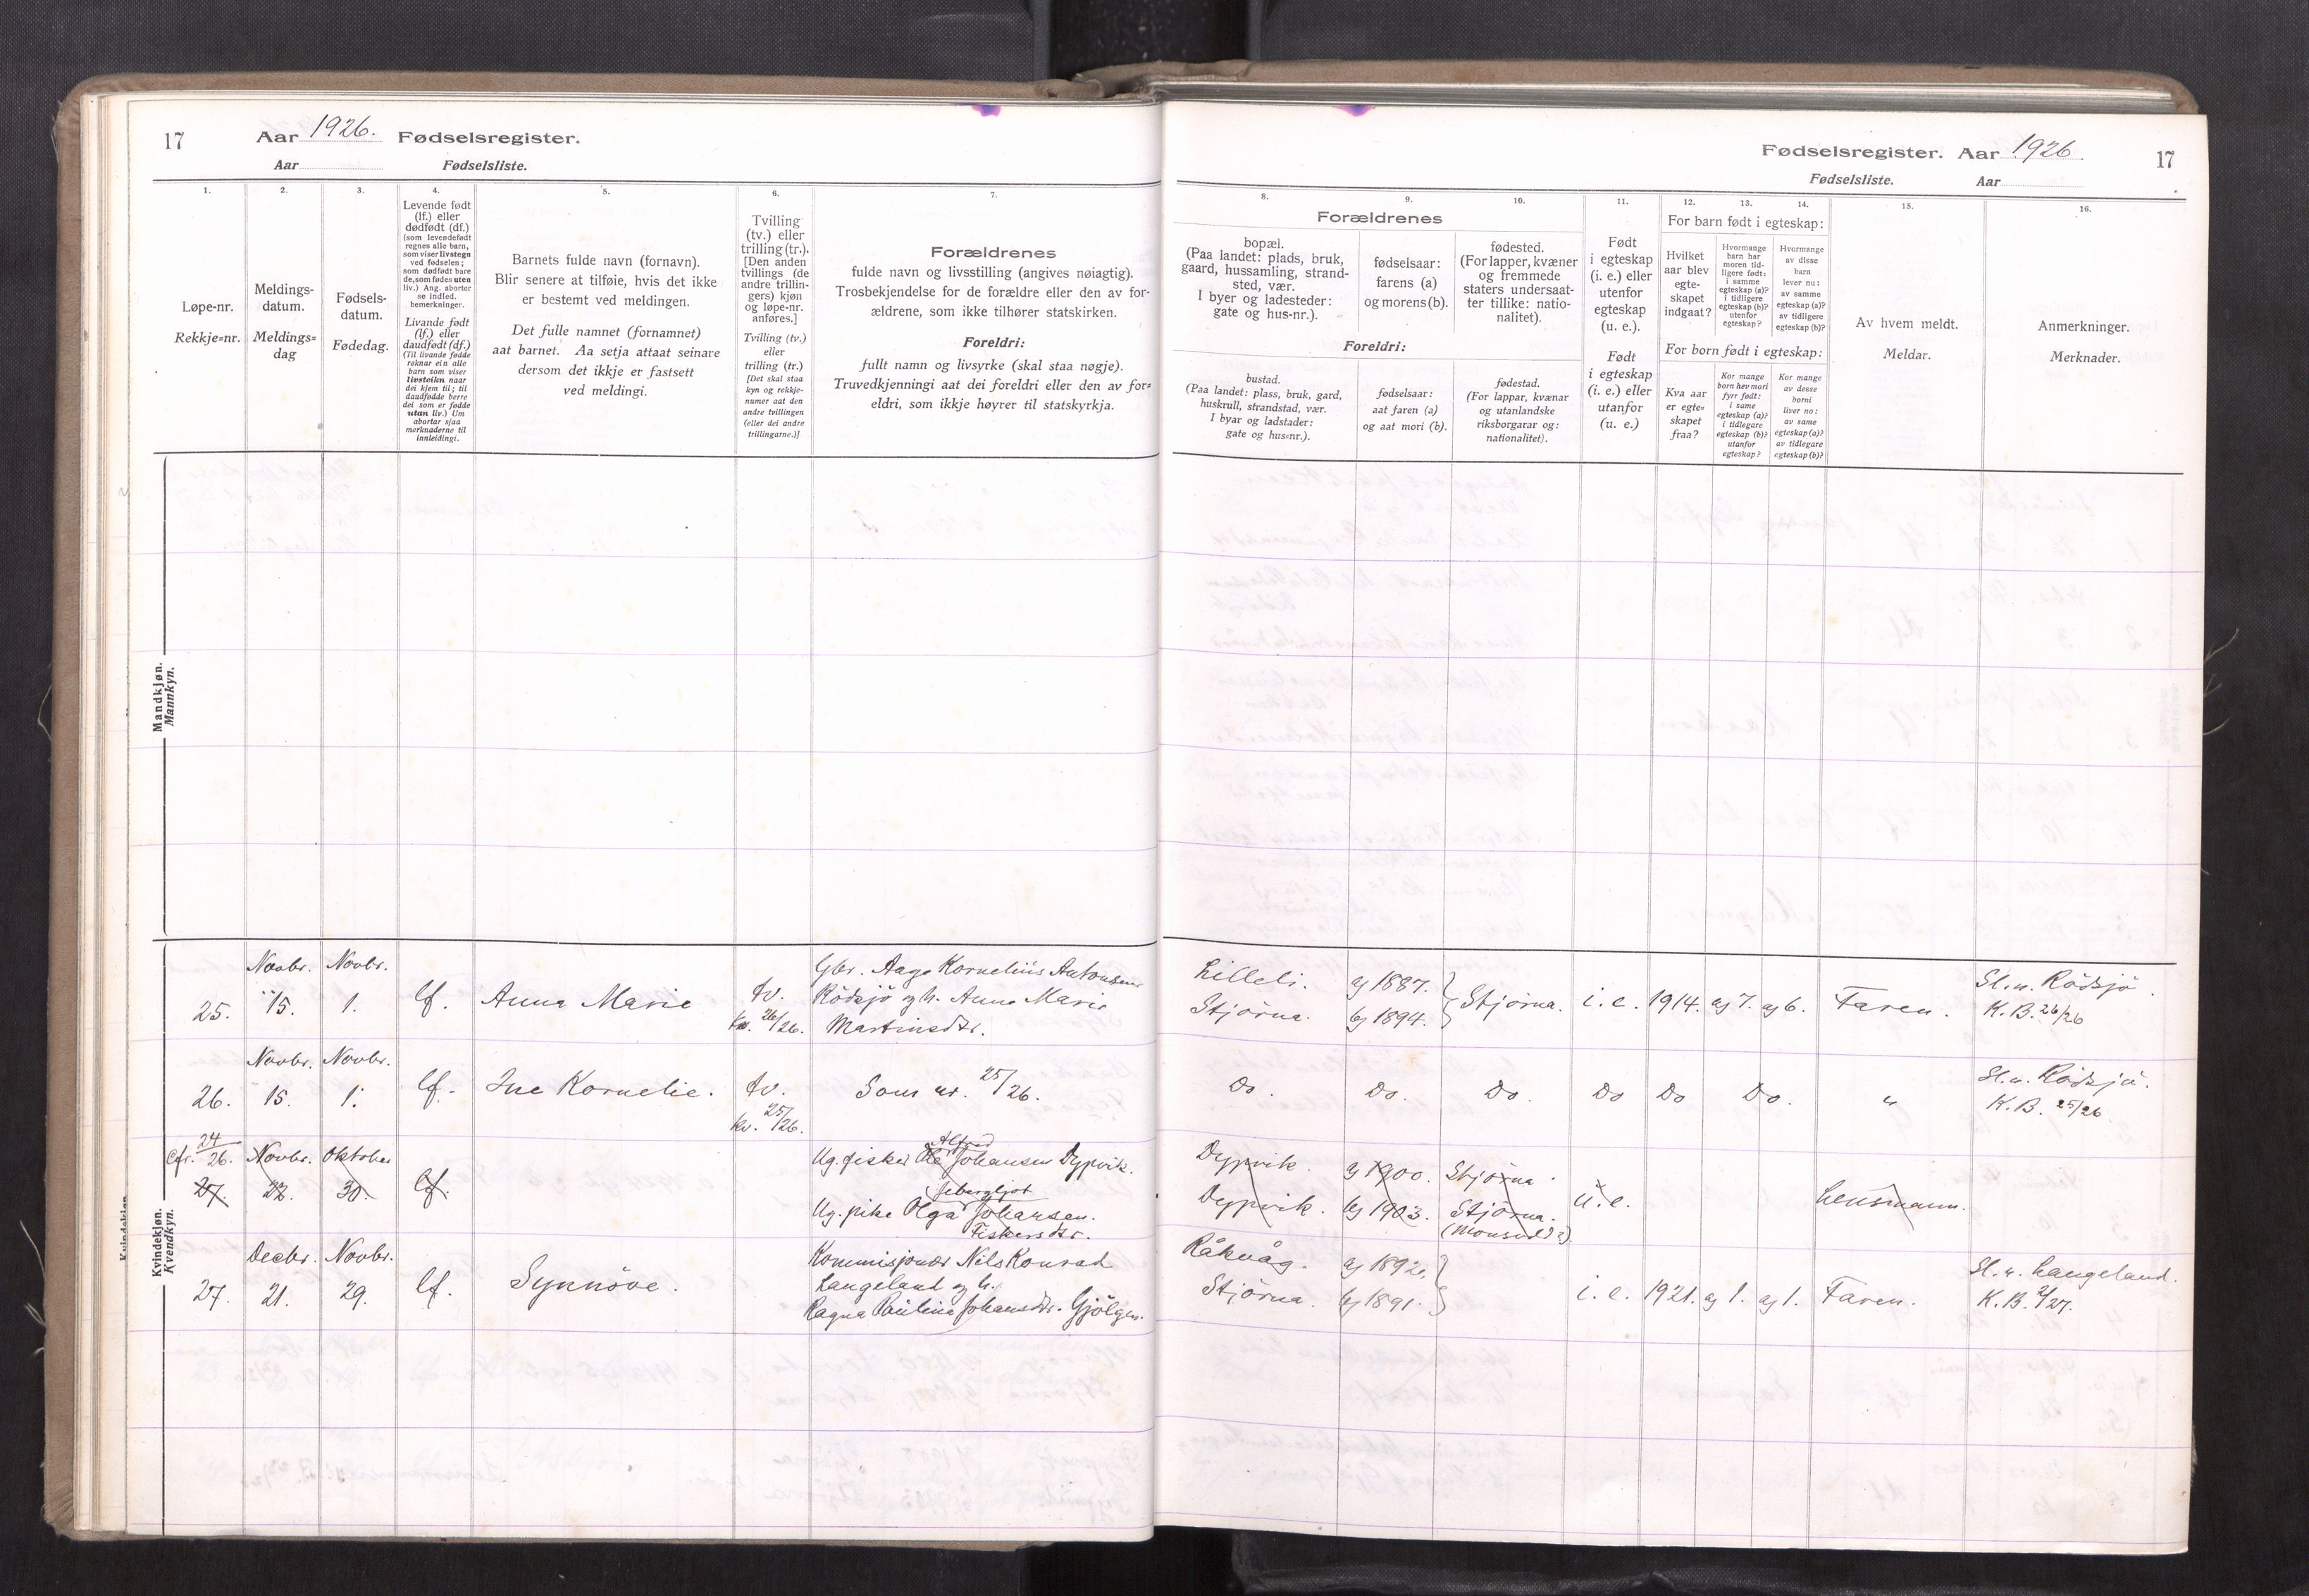 17
Aar 1926. Fødselsregister.
Aar Fødselsliste.
Fødselsregister. Aar 1926.
17
Fødselsliste. Aar
1.
Løpe-nr.
Rekkje=nr.
2.
Meldings-
datum.
Meldings=
dag
3.
Fødsels-
datum.
Fødedag.
4.
Levende født
(lf.) eller
dødfødt (df.)
(som levendefødt
regnes alle barn,
som viser livstegn
ved fødselen;
som dødfødt bare
de, som fødes uten
liv.) Ang. aborter
se indled.
bemerkninger.
Livande født
(lf.) eller
daudfødt (df.)
(Til livande fødde
reknar ein alle
barn som viser
livsteikn naar
dei kjem til; til
daudfødde berre
dei som er fødde
utan liv.) Um
abortar sjaa
merknaderne til
innleidingi.
5.
Barnets fulde navn (fornavn).
Blir senere at tilføie, hvis det ikke
er bestemt ved meldingen.
Det fulle namnet (fornamnet)
aat barnet. Aa setja attaat seinare
dersom det ikkje er fastsett
ved meldingi.
6.
Tvilling
(tv.) eller
trilling (tr.).
[Den anden
tvillings (de
andre trillin-
gers) kjøn
og løpe-nr.
anføres.]
Tvilling (tv.)
eller
trilling (tr.)
[Det skal staa
kyn og rekkje-
numer aat den
andre tvillingen
(eller dei andre
trillingarne.)]
7.
Forældrenes
fulde navn og livsstilling (angives nøiagtig).
Trosbekjendelse for de forældre eller den av for-
ældrene, som ikke tilhører statskirken.
Foreldri:
fullt namn og livsyrke (skal staa nøgje).
Truvedkjenningi aat dei foreldri eller den av for=
eldri, som ikkje høyrer til statskyrkja.
8.
Forældrenes
bopæl.
(Paa landet: plads, bruk,
gaard, hussamling, strand-
sted, vær.
I byer og ladesteder:
gate og hus-nr.).
Foreldri:
bustad.
(Paa landet: plass, bruk, gard,
huskrull, strandstad, vær.
I byar og ladstader:
gate og hus=nr.).
9.
fødselsaar:
farens (a)
og morens (b).
fødselsaar:
aat faren (a)
og aat mori (b).
10.
fødested.
(For lapper, kvæner
og fremmede
staters undersaat-
ter tillike: natio-
nalitet).
fødestad.
(For lappar, kvænar
og utanlandske
riksborgarar og:
nationalitet).
11.
Født
i egteskap
(i. e.) eller
utenfor
egteskap
(u. e.).
Født
i egteskap
(i. e.) eller
utanfor
(u. e.)
12. 13. 14.
For barn født i egteskap:
Hvilket
aar blev
egte-
skapet
indgaat?
Hvormange
barn har
moren tid-
ligere født:
i samme
egteskap (a)?
i tidligere
egteskap (b)?
utenfor
egteskap?
Hvormange
av disse
barn
lever nu:
av samme
egteskap (a)?
av tidligere
egteskap (b)?
For born født i egteskap:
Kva aar
er egte=
skapet
fraa?
Kor mange
born hev mori
fyrr født:
i same
egteskap (a)?
i tidlegare
egteskap (b)?
utanfor
egteskap?
Kor mange
av desse
borni
liver no:
av same
egteskap (a)?
av tidlegare
egteskap (b)?
15.
Av hvem meldt.
Meldar.
16.
Anmerkninger.
Merknader.
Mandkjøn.
Mannkyn.
Kvindekjøn.
Kvendkyn.
Novbr. Novbr.
25. 15. 1. lf. Anna Marie tv.
kv. 26/26.
Gbr. Aage Kornelius Antonsen
Rödsjö og h. Anna Marie
Martinsdtr.
Lilleli.
Stjörna.
a) 1887.
b) 1894.
Stjörna. i. e. 1914. a) 7. a) 6. Faren.
Sl.n. Rödsjö.
K.B. 26/26
Novbr. Novbr.
26. 15. 1. lf. Ine Kornelie. tv.
kv. 25/26.
Som nr. 25/26.
Do. Do. Do. Do Do Do. "
Sl.n. Rödsjö.
K.B. 25/26
Cfr. 24/26. Novbr. Oktober
27. 22. 30. lf.
Alfred
Ug. fisker Ole Johansen Dypvik.
Ug. pike Olga Johansen.
Fiskersdtr.
Dypvik.
Dypvik.
a) 1900.
b) 1903.
Stjörna.
Stjörna.
u. e. Lensmann.
Decbr. Novbr.
27. 21. 29. lf. Synnöve.
Kommisjonær Nils Konrad
Langeland og h.
Ragna Pauline Johansdtr. Gjölgen.
Råkvåg.
Stjörna.
a) 1892.
b) 1891.
i. e. 1921. a) 1. a) 1. Faren.
Sl.n. Langeland.